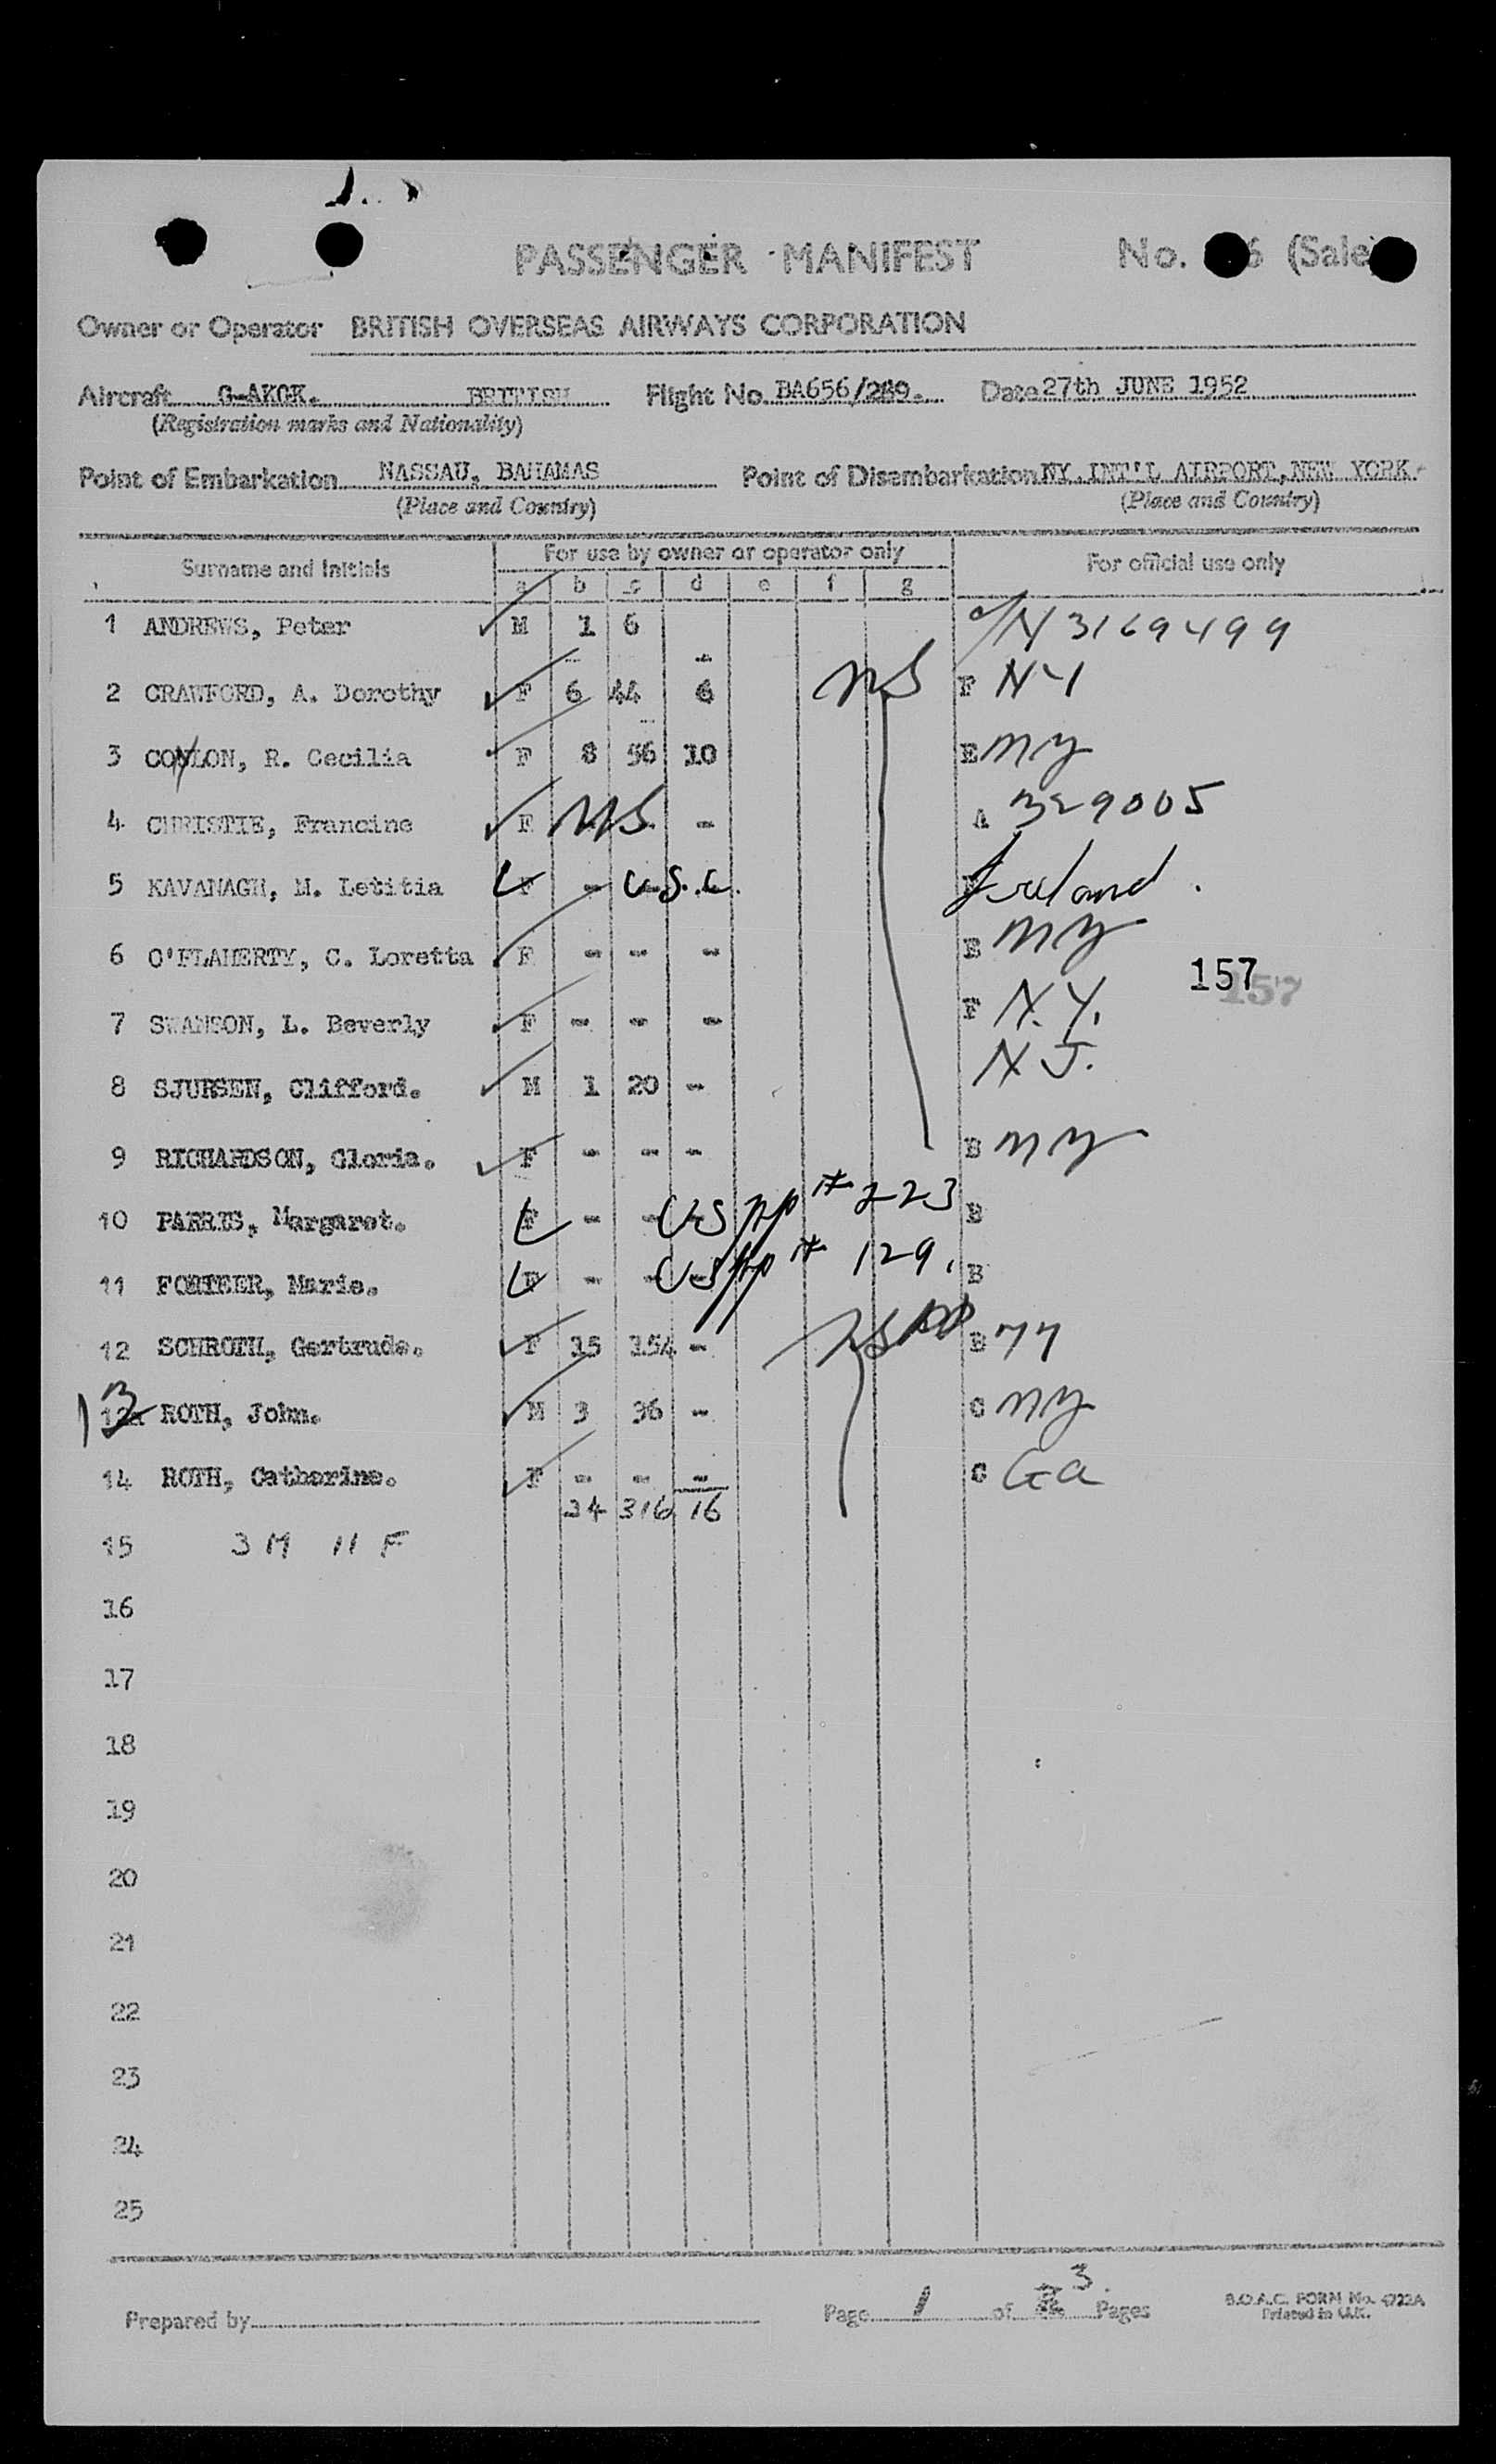 PASSENGER MANIFEST No. 6 (Sale
Owner or Operator BRITISH OVERSEAS AIRWAYS CORPORATION
Aircraft G-AKGK. BRITISH Flight No. BA656/289. Date 27th JUNE 1952
(Registration marks and Nationality)
Point of Embarkation NASSAU, BAHAMAS Point of Disembarkation NY.INT'L AIRPORT,NEW YORK.
(Place and Country) (Place and Country)
Surname and Initials For use by owner or operator only For official use only
a b c d e f g
1 ANDREWS, Peter M 1 6 3169499
2 CRAWFORD, A. Dorothy F 6 44 6 NS F NY
3 CONLON, R. Cecilia F 8 56 10 E NY
4 CHRISTIE, Francine F NS - A 329005
5 KAVANAGH, M. Letitia F - U.S.C. Ireland.
6 O'FLAHERTY, C. Loretta F - - - E NY
157 157
7 SWANSON, L. Beverly F - - - F N.Y.
8 SJURSEN, Clifford. M 1 20 - N.J.
9 RICHARDSON, Gloria. F - - - B NY
10 PARRIS, Margaret. F - - US pp # 223 B
11 FORTEER, Marie. F - - US pp # 129. B
12 SCHROTH, Gertrude. F 15 154 - B NY
13 ROTH, John. M 3 36 - C NY
14 ROTH, Catherine. F - - - C Ga
34 316 16
15 3 M 11 F
16
17
18
19
20
21
22
23
24
25
Prepared by Page 1 of 3 Pages
B.O.A.C. FORM No. 4722A
Printed in U.K.